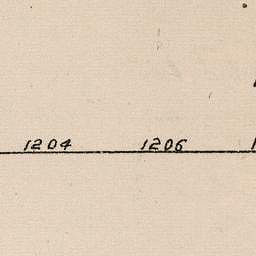 1204 1206